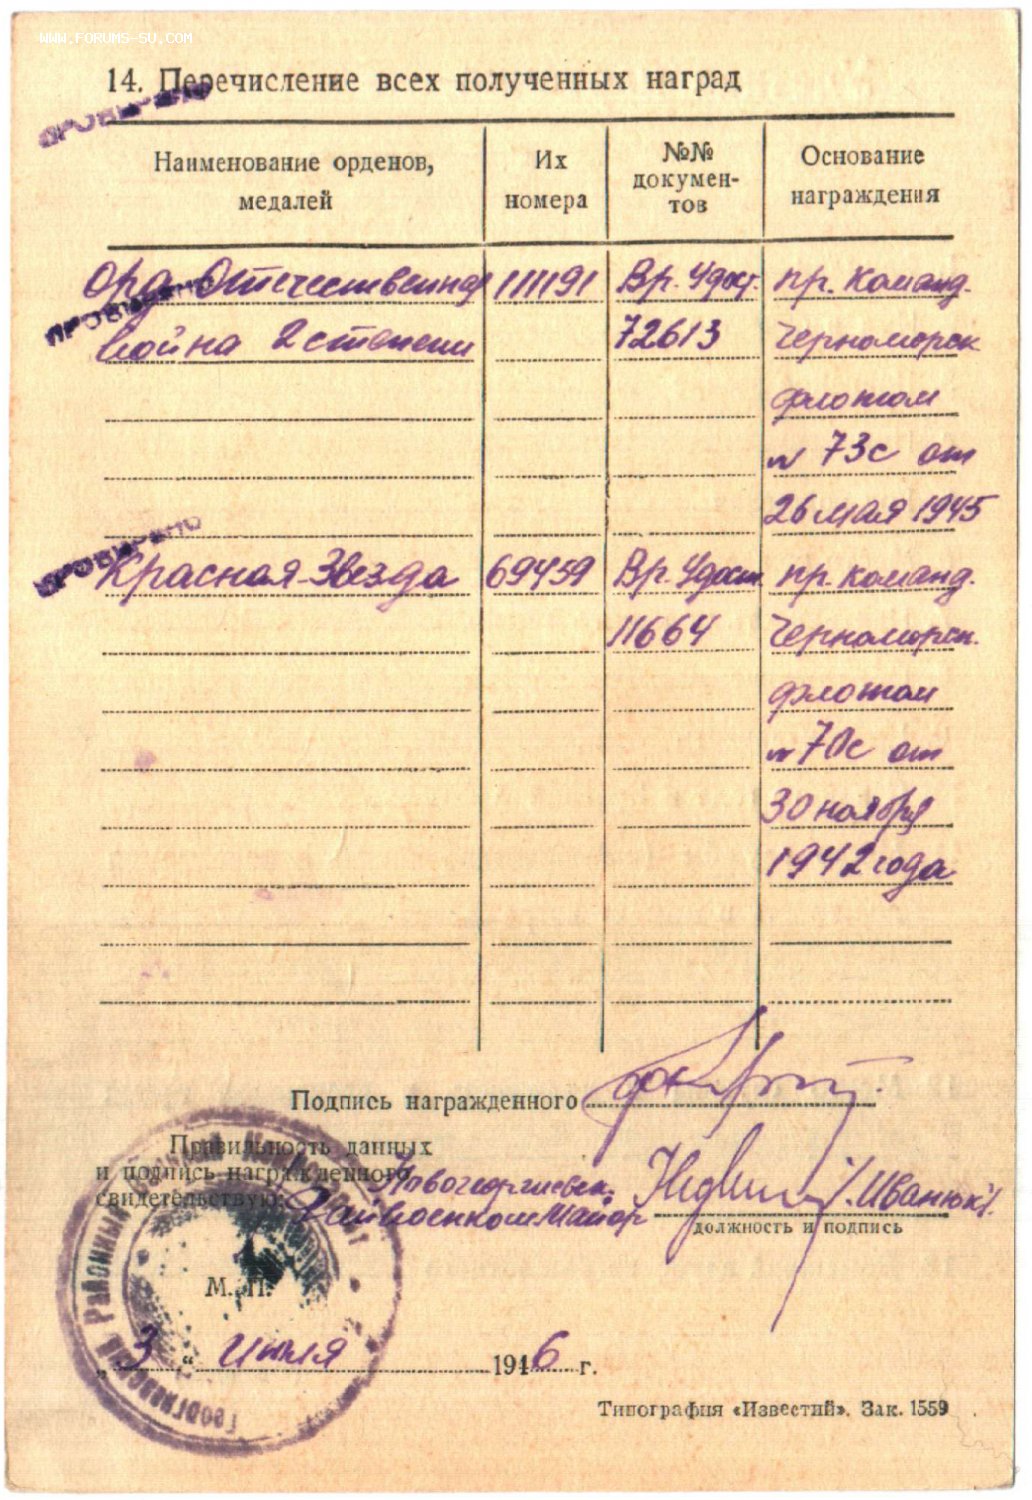 WWW.FORUMS-SU.COM
14. Перечисление всех полученных наград
ПРОВЕРЕНО
Наименование орденов, медалей
Их номера
№№ докумен-
тов
Основание награждения
Орд. Отечественная 111191 Вр. Удост. пр. Команд.
ПРОВЕРЕНО
Война 2 степени 72613 Черноморск
флотом
№ 73с от
26 мая 1945
ПРОВЕРЕНО
Красная Звезда 69459 Вр. Удост. пр. команд.
11664 Черноморск.
флотом
№ 70с от
30 ноября
1942 года
Подпись награжденного
Правильность данных
и подпись награжденного
свидетельствую:
Новогеоргиевск.
Райвоенком Майор /Иванюк/.
должность и подпись
М. П.
„3“ июля 1946 г.
Типография «Известий». Зак. 1559